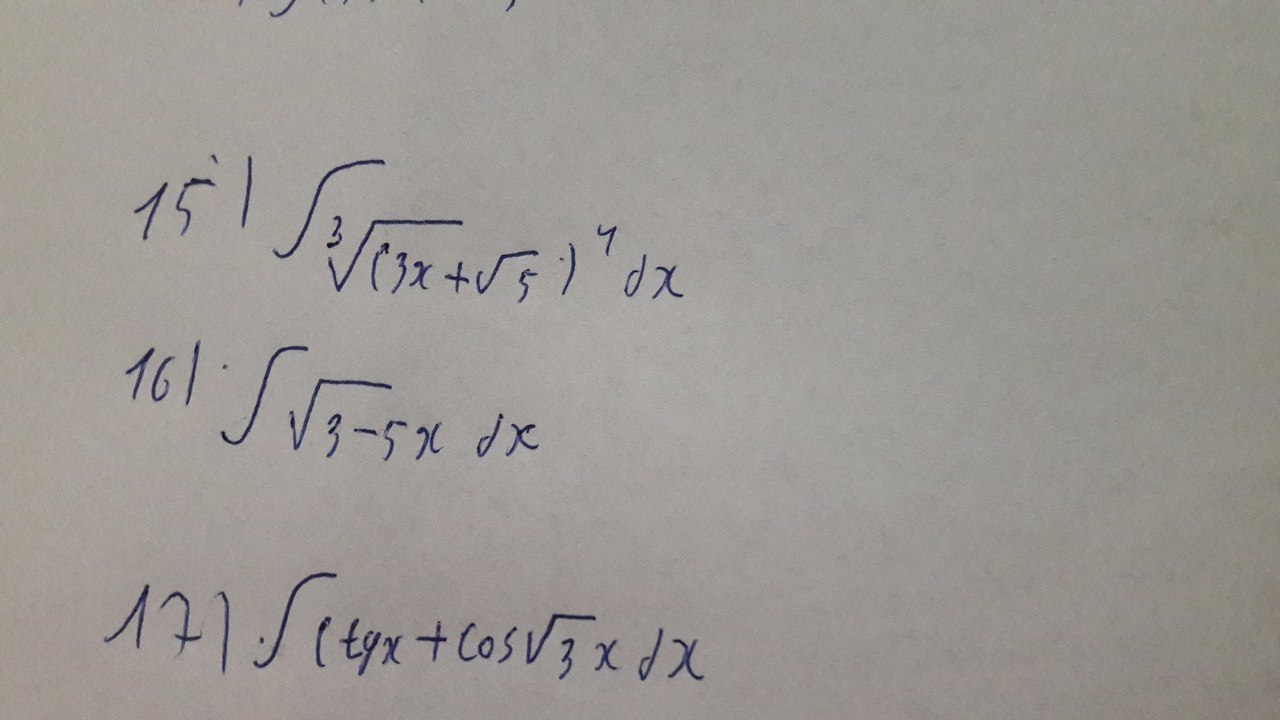 15) ∫ ∛(3x+√5)⁴ dx
16) ∫ √3-5x dx
17) ∫ (tgx + cos√3 x dx